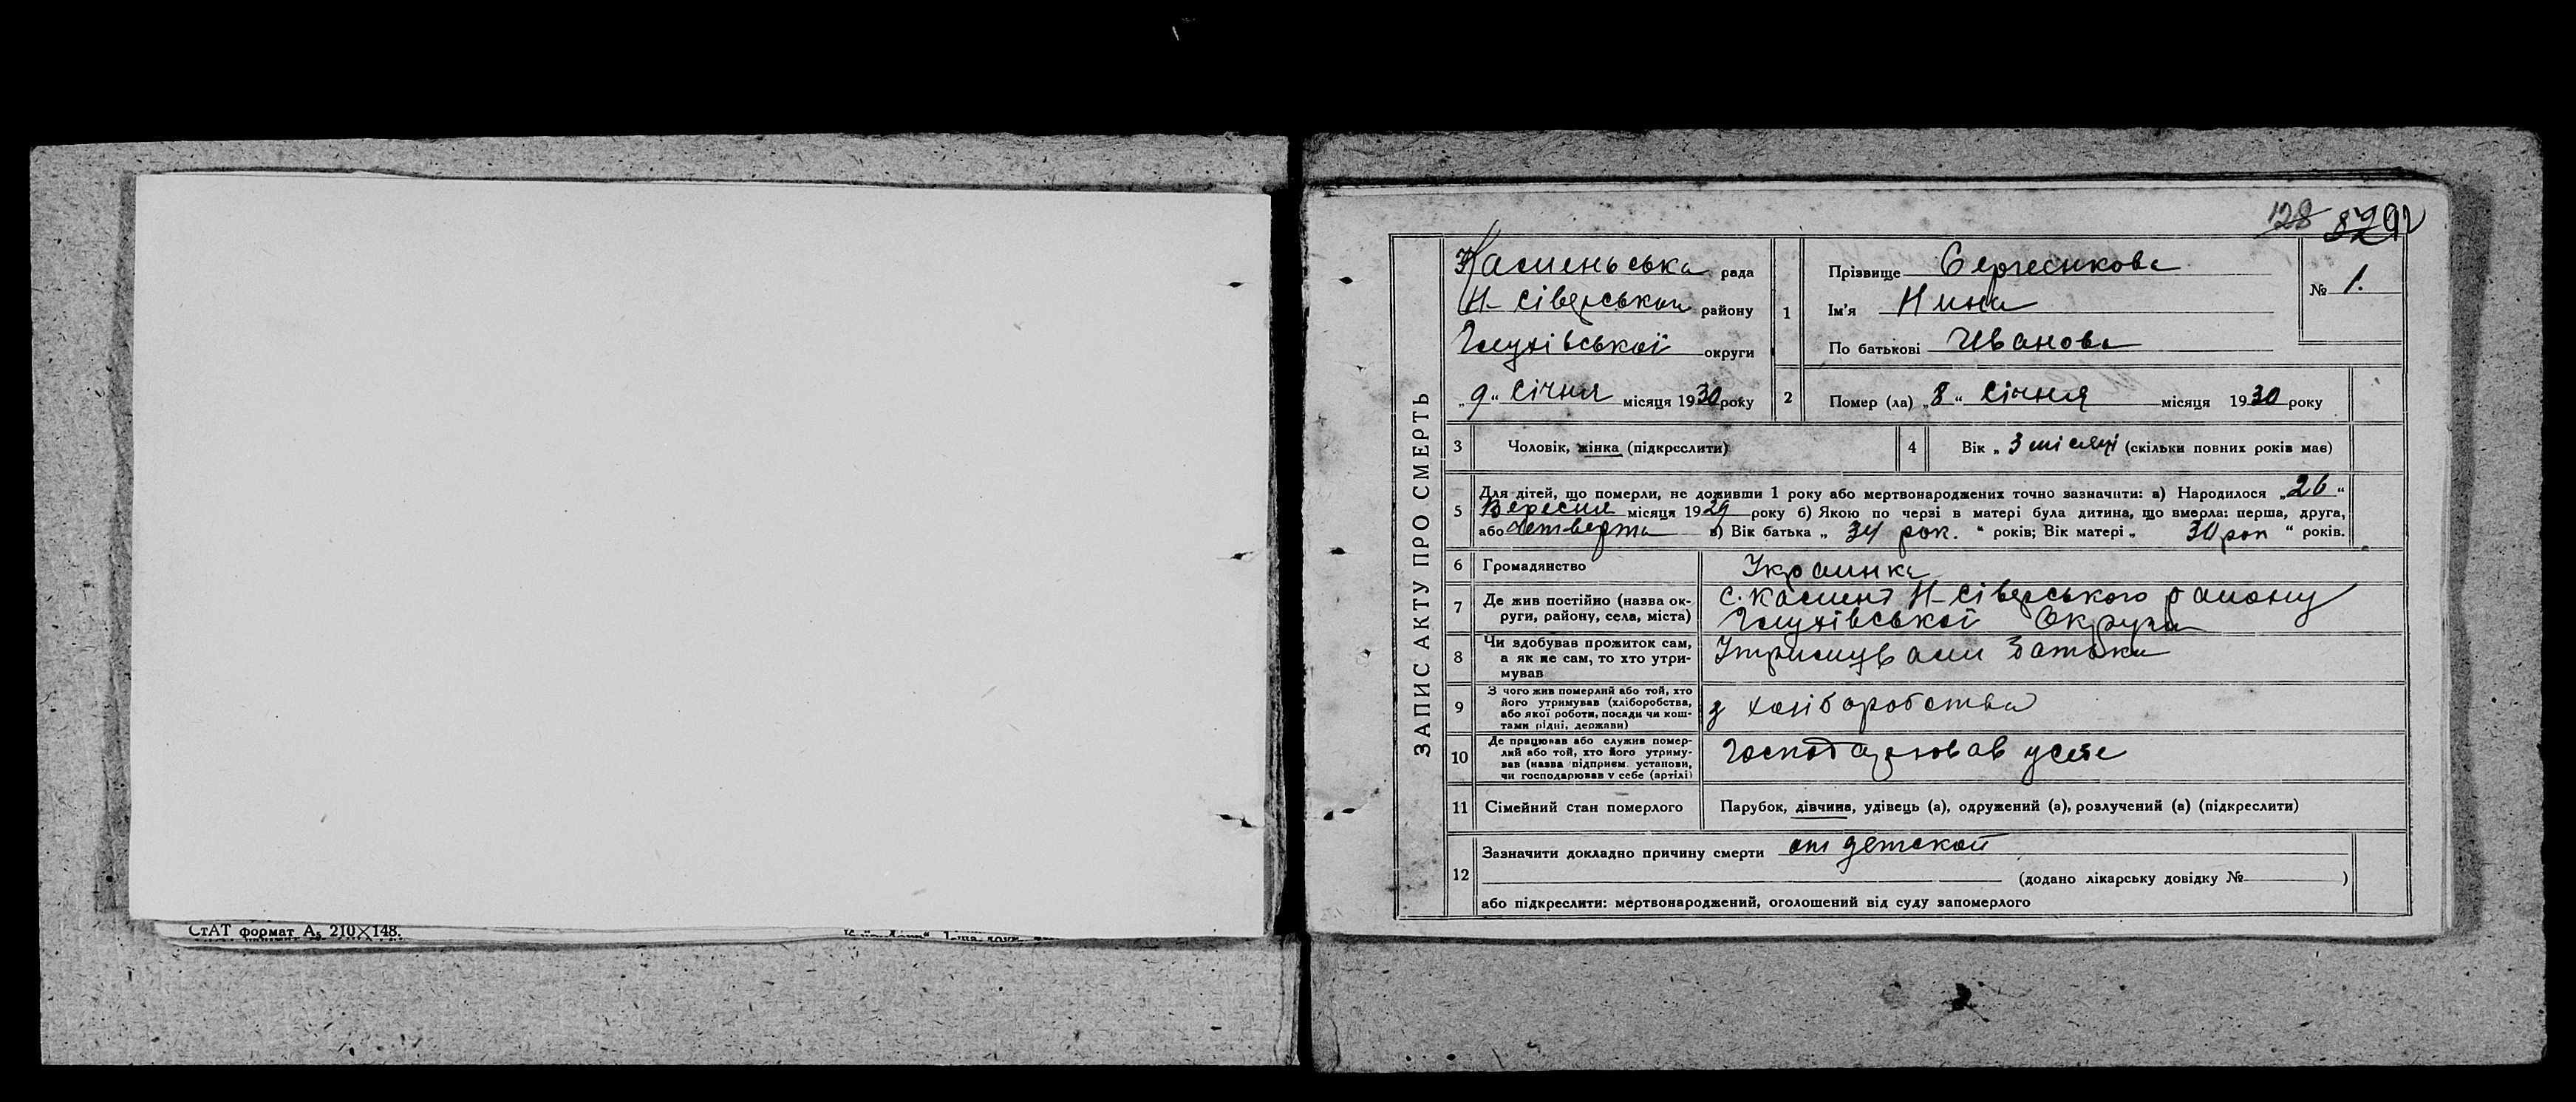 128 82 92
ЗАПИС АКТУ ПРО СМЕРТЬ
Каменьська рада
Н-Сіверськои району
Глухівської округи
„9“ Січня місяця 1930 року
1
Прізвище Сергеєнкова
Ім'я Нина
По батькові Иванова
№ 1.
2
Помер (ла) „8“ Січня місяця 1930 року
3 Чоловік, жінка (підкреслити)
4 Вік „3 місяці (скільки повних років має)
5
Для дітей, що померли, не доживши 1 року або мертвонароджених точно зазначити: а) Народилося „26“
Вересня місяця 1929 року б) Якою по черзі в матері була дитина, що вмерла: перша, друга,
або четверта в) Вік батька „ 34 рок. “ років; Вік матері „ 30 рок “ років.
6 Громадянство Украинка
7 Де жив постійно (назва ок-
руги, району, села, міста)
с. Камень Н-Сіверського району
Глухівської Округи
8 Чи здобував прожиток сам,
а як не сам, то хто утри-
мував
Утримували батьки
9 З чого жив померлий або той, хто
його утримував (хліборобства,
або якої роботи, посади чи кош-
тами рідні, держави)
з хліборобства
10 Де працював або служив помер-
лий або той, хто його утриму-
вав (назва підприєм. установи,
чи господарював у себе (артілі)
Господарював усебе
11 Сімейний стан померлого Парубок, дівчина, удівець (а), одружений (а), розлучений (а) (підкреслити)
12
Зазначити докладно причину смерти от детской
(додано лікарську довідку № )
або підкреслити: мертвонароджений, оголошений від суду запомерлого
СтАТ формат А5 210×148.